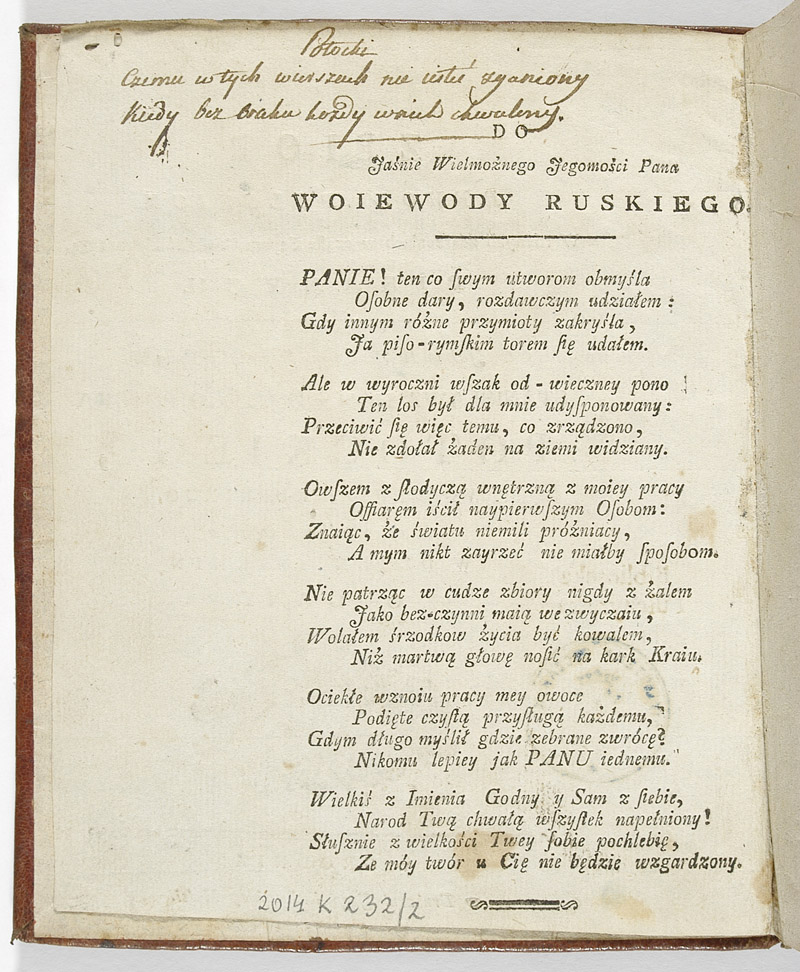 Potocki
Czemu w tych wierszach nie iesteś zganiony
Kiedy bez braku każdy w nich chwalony.
DO
Jaśnie Wielmożnego Jegomości Pana
WOIEWODY RUSKIEGO.
PANIE! ten co ſwym utworom obmyśla
Oſobne dary, rozdawczym udziałem:
Gdy innym różne przymioty zakryśla,
Ja piſo-rymſkim torem ſię udałem.
Ale w wyroczni wſzak od-wieczney pono
Ten los był dla mnie udyſponowany:
Przeciwić ſię więc temu, co zrządzono,
Nie zdołał żaden na ziemi widziany.
Owſzem z ſłodyczą wnętrzną z moiey pracy
Offiaręm iścił naypierwſzym Oſobom:
Znaiąc, że światu niemili próżniacy,
A mym nikt zayrzeć nie miałby ſpoſobom.
Nie patrząc w cudze zbiory nigdy z żalem
Jako bez-czynni maią we zwyczaiu,
Wolałem śrzodkow życia być kowalem,
Niż martwą głowę noſić na kark Kraiu.
Ociekłe wznoiu pracy mey owoce
Podięte czyſtą przyſługą każdemu,
Gdym długo myślił gdzie zebrane zwrócę?
Nikomu lepiey jak PANU iednemu.
Wielkiś z Imienia Godny y Sam z ſiebie,
Narod Twą chwałą wſzyſtek napełniony!
Słuſznie z wielkości Twey ſobie pochlebię,
Ze móy twór u Cię nie będzie wzgardzony.
2014 K 232/2